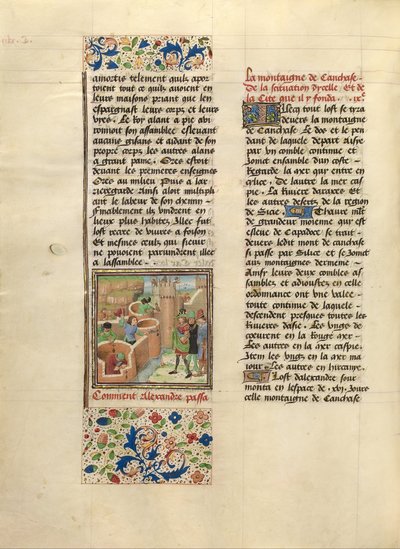 amortis telement quilz apor
toient tout ce quilz avoient en
leurs maisons priant que len
espargnast leurs corps et leurs
vyes. Le Roy alant a pie abi
ronnoit son assamblee eslevant
aucuns gisans et aidant de son
propre corps les autres alans
a grant paine. Ores estoit
devant les premieres enseignes
Ores au milieu Puis a lar
rieregarde Ainsi aloit multipli
ant le labeur de son chemin
finablement ilz vindrent en
lieux plus habitez Illec fut
lost recree de vivres a foison
Et mesmes ceulx qui sieuir
ne pouoient parvindrent illec
a lassamblee
Comment Alexandre passa
la montaigne de Caucase
De la scituation dycelle Et de
la Cite que il y fonda. .ix.
Illecq tout lost se tira
devers la montaigne
de Caucase Le dos et le pen
dant de laquele depart Asie
par ung comble continue et
Joint ensamble dun coste
Regarde la mer qui entre en
Cilice De lautre la mer cas
pie La Riviere daraxes et
les autres desers de la region
de Sicie Thaurus mont
de grandeur moienne qui est
esleue de Capadoce se trait
devers ledit mont de Caucase
si passe par Silice et se Joint
aux montaignes dermenie
Ainsi leurs deux combles as
samblez et adioustez en celle
ordonnance ont une valee
toute continue de laquele
descendent presques toutes les
Rivieres dasie Les unes de
coeurent en la Rouge mer
Les autres en la mer caspie
Item les unes en la mer ma
iour Les autres en hircanye
Lost dalexandre sour
monta en lespace de .xvi. Jours
celle montaigne de Caucase